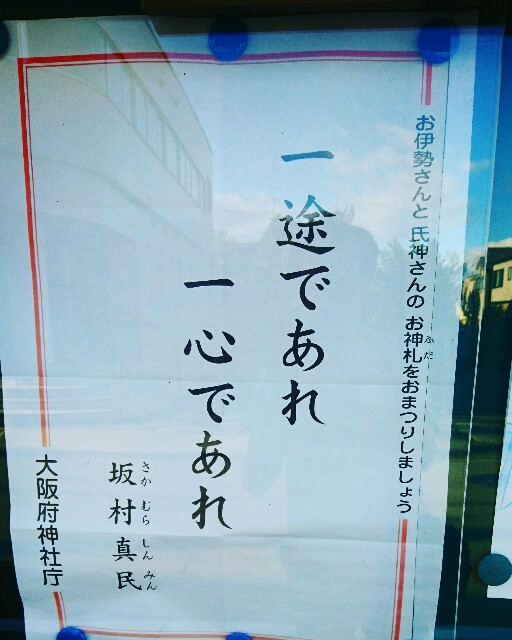 お伊勢さんと氏神さんのお神札をおまつりしましょう
ふだ
一途であれ
一心であれ
さか むら しん みん
坂村真民
大阪府神社庁